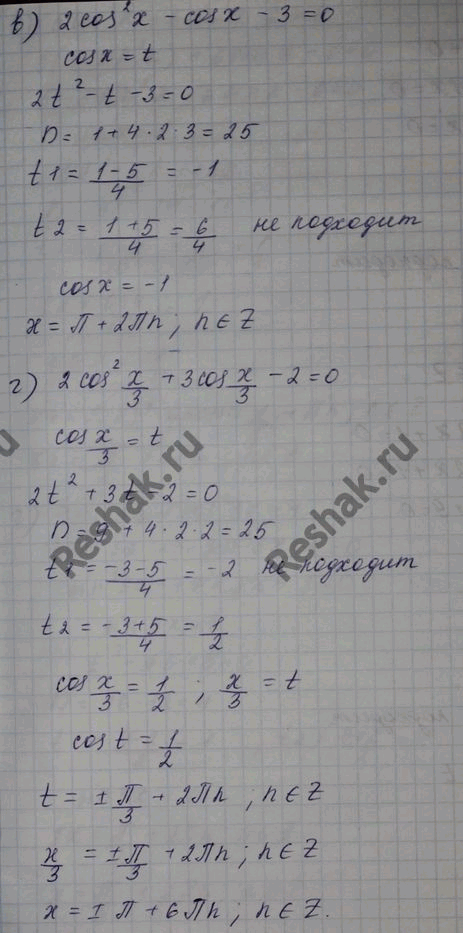 в) 2cos²x - cosx - 3 = 0
cosx = t
2t² - t - 3 = 0
D = 1 + 4 · 2 · 3 = 25
t1 = (1-5)/4 = -1
t2 = (1+5)/4 = 6/4 не подходит
cosx = -1
x = π + 2πn ; n ∈ Z
г) 2cos² x/3 + 3cos x/3 - 2 = 0
cos x/3 = t
2t² + 3t - 2 = 0
D = 9 + 4 · 2 · 2 = 25
t1 = (-3-5)/4 = -2 не подходит
t2 = (-3+5)/4 = 1/2
cos x/3 = 1/2 ; x/3 = t
cos t = 1/2
t = ± π/3 + 2πn ; n ∈ Z
x/3 = ± π/3 + 2πn ; n ∈ Z
x = ± π + 6πn ; n ∈ Z.
Reshak.ru
Reshak.ru